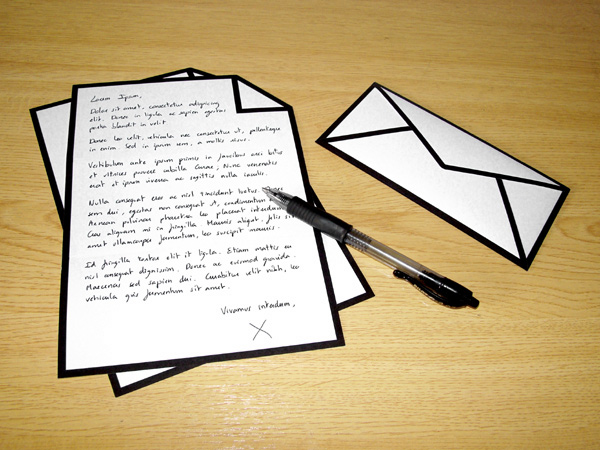 Lorem Ipsum,
Dolor sit amet, consectetur adipiscing
elit. Donec in ligula ac sapien egestas
porta blandit in velit.
Donec leo velit, vehicula nec consectetur ut, pellentesque
in enim. Sed in ipsum sem, a mollis risus.
Vestibulum ante ipsum primis in faucibus orci luctus
et ultrices posuere cubilia Curae; Nunc venenatis
erat et ipsum viverra ac sagittis nulla iaculis.
Nulla consequat eros ac nisl tincidunt tortor
sem dui, egestas non consequat, condimentum
Aenean pulvinar pharetra leo placerat interdum.
Cras aliquam mi in fringilla Mauris aliquet, felis
amet ullamcorper fermentum, leo suscipit mauris.
Id fringilla tortor elit et ligula. Etiam mattis eu
nisl consequat dignissim. Donec ac euismod gravida.
Maecenas sed sapien dui. Curabitur velit nibh, leo
vehicula quis fermentum sit amet.
Vivamus interdum,
X